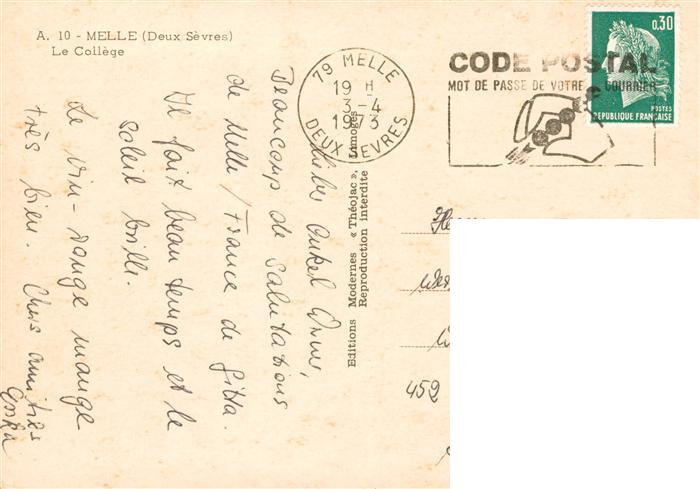 A. 10 - MELLE (Deux Sèvres)
Le Collège
79 MELLE
19 H
3-4
1973
DEUX SEVRES
CODE POSTAL
MOT DE PASSE DE VOTRE COURRIER
0,30
POSTES
REPUBLIQUE FRANÇAISE
Editions Modernes « Théojac », Limoges
Reproduction interdite
Onkel
Beaucoup de Salutations
de Melle / France de Gitta.
Il fait beau temps et le
soleil brille.
Le mange
très bien. amitiés
452